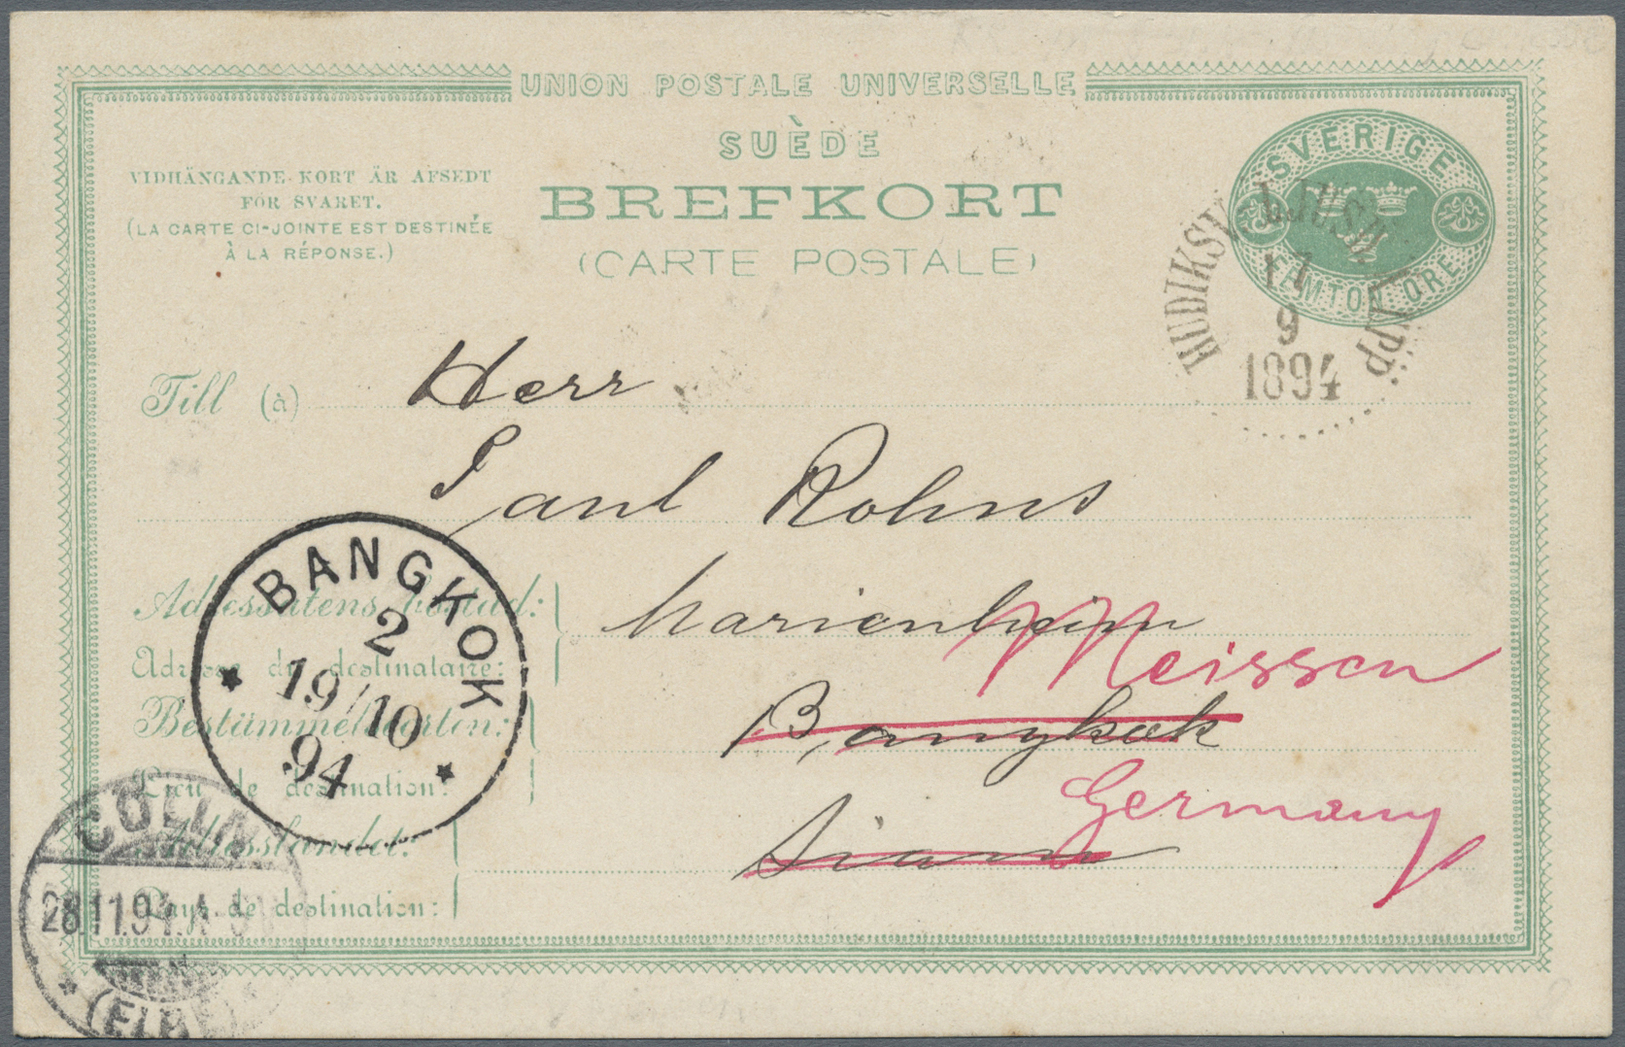 UNION POSTALE UNIVERSELLE
SUÈDE
BREFKORT
(CARTE POSTALE)
VIDHÄNGANDE KORT ÄR AFSEDT
FÖR SVARET.
(LA CARTE CI-JOINTE EST DESTINÉE
À LA RÉPONSE.)
SVERIGE
FEMTON ÖRE
17
9
1894
Till (à) Herr
Paul Rohns
Adressatens bostad: Marienheim
Adresse du destinataire: Meissen
Bestämmelseorten: Bangkok
Lieu de destination: Germany
Adresslandet: Siam
Pays de destination:
BANGKOK
2
19/10
94
CÖLLN
28.11.94.
(ELBE)